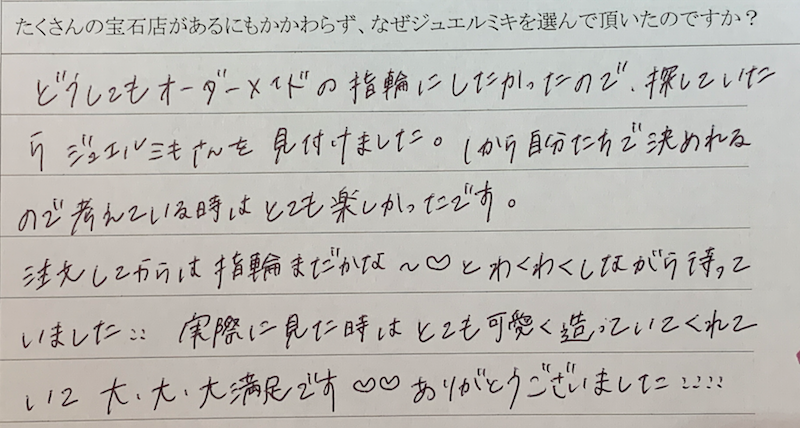 たくさんの宝石店があるにもかかわらず、なぜジュエルミキを選んで頂いたのですか？
どうしてもオーダーメイドの指輪にしたかったので、探していた
ら ジュエルミキさんを 見付けました。1から自分たちで決めれる
ので考えている時はとても楽しかったです。
注文してからは指輪まだかな〜♡とわくわくしながら待って
いました:: 実際に見た時はとても可愛く造っていてくれて
いて 大、大、大満足です ♡♡ ありがとうございました::::